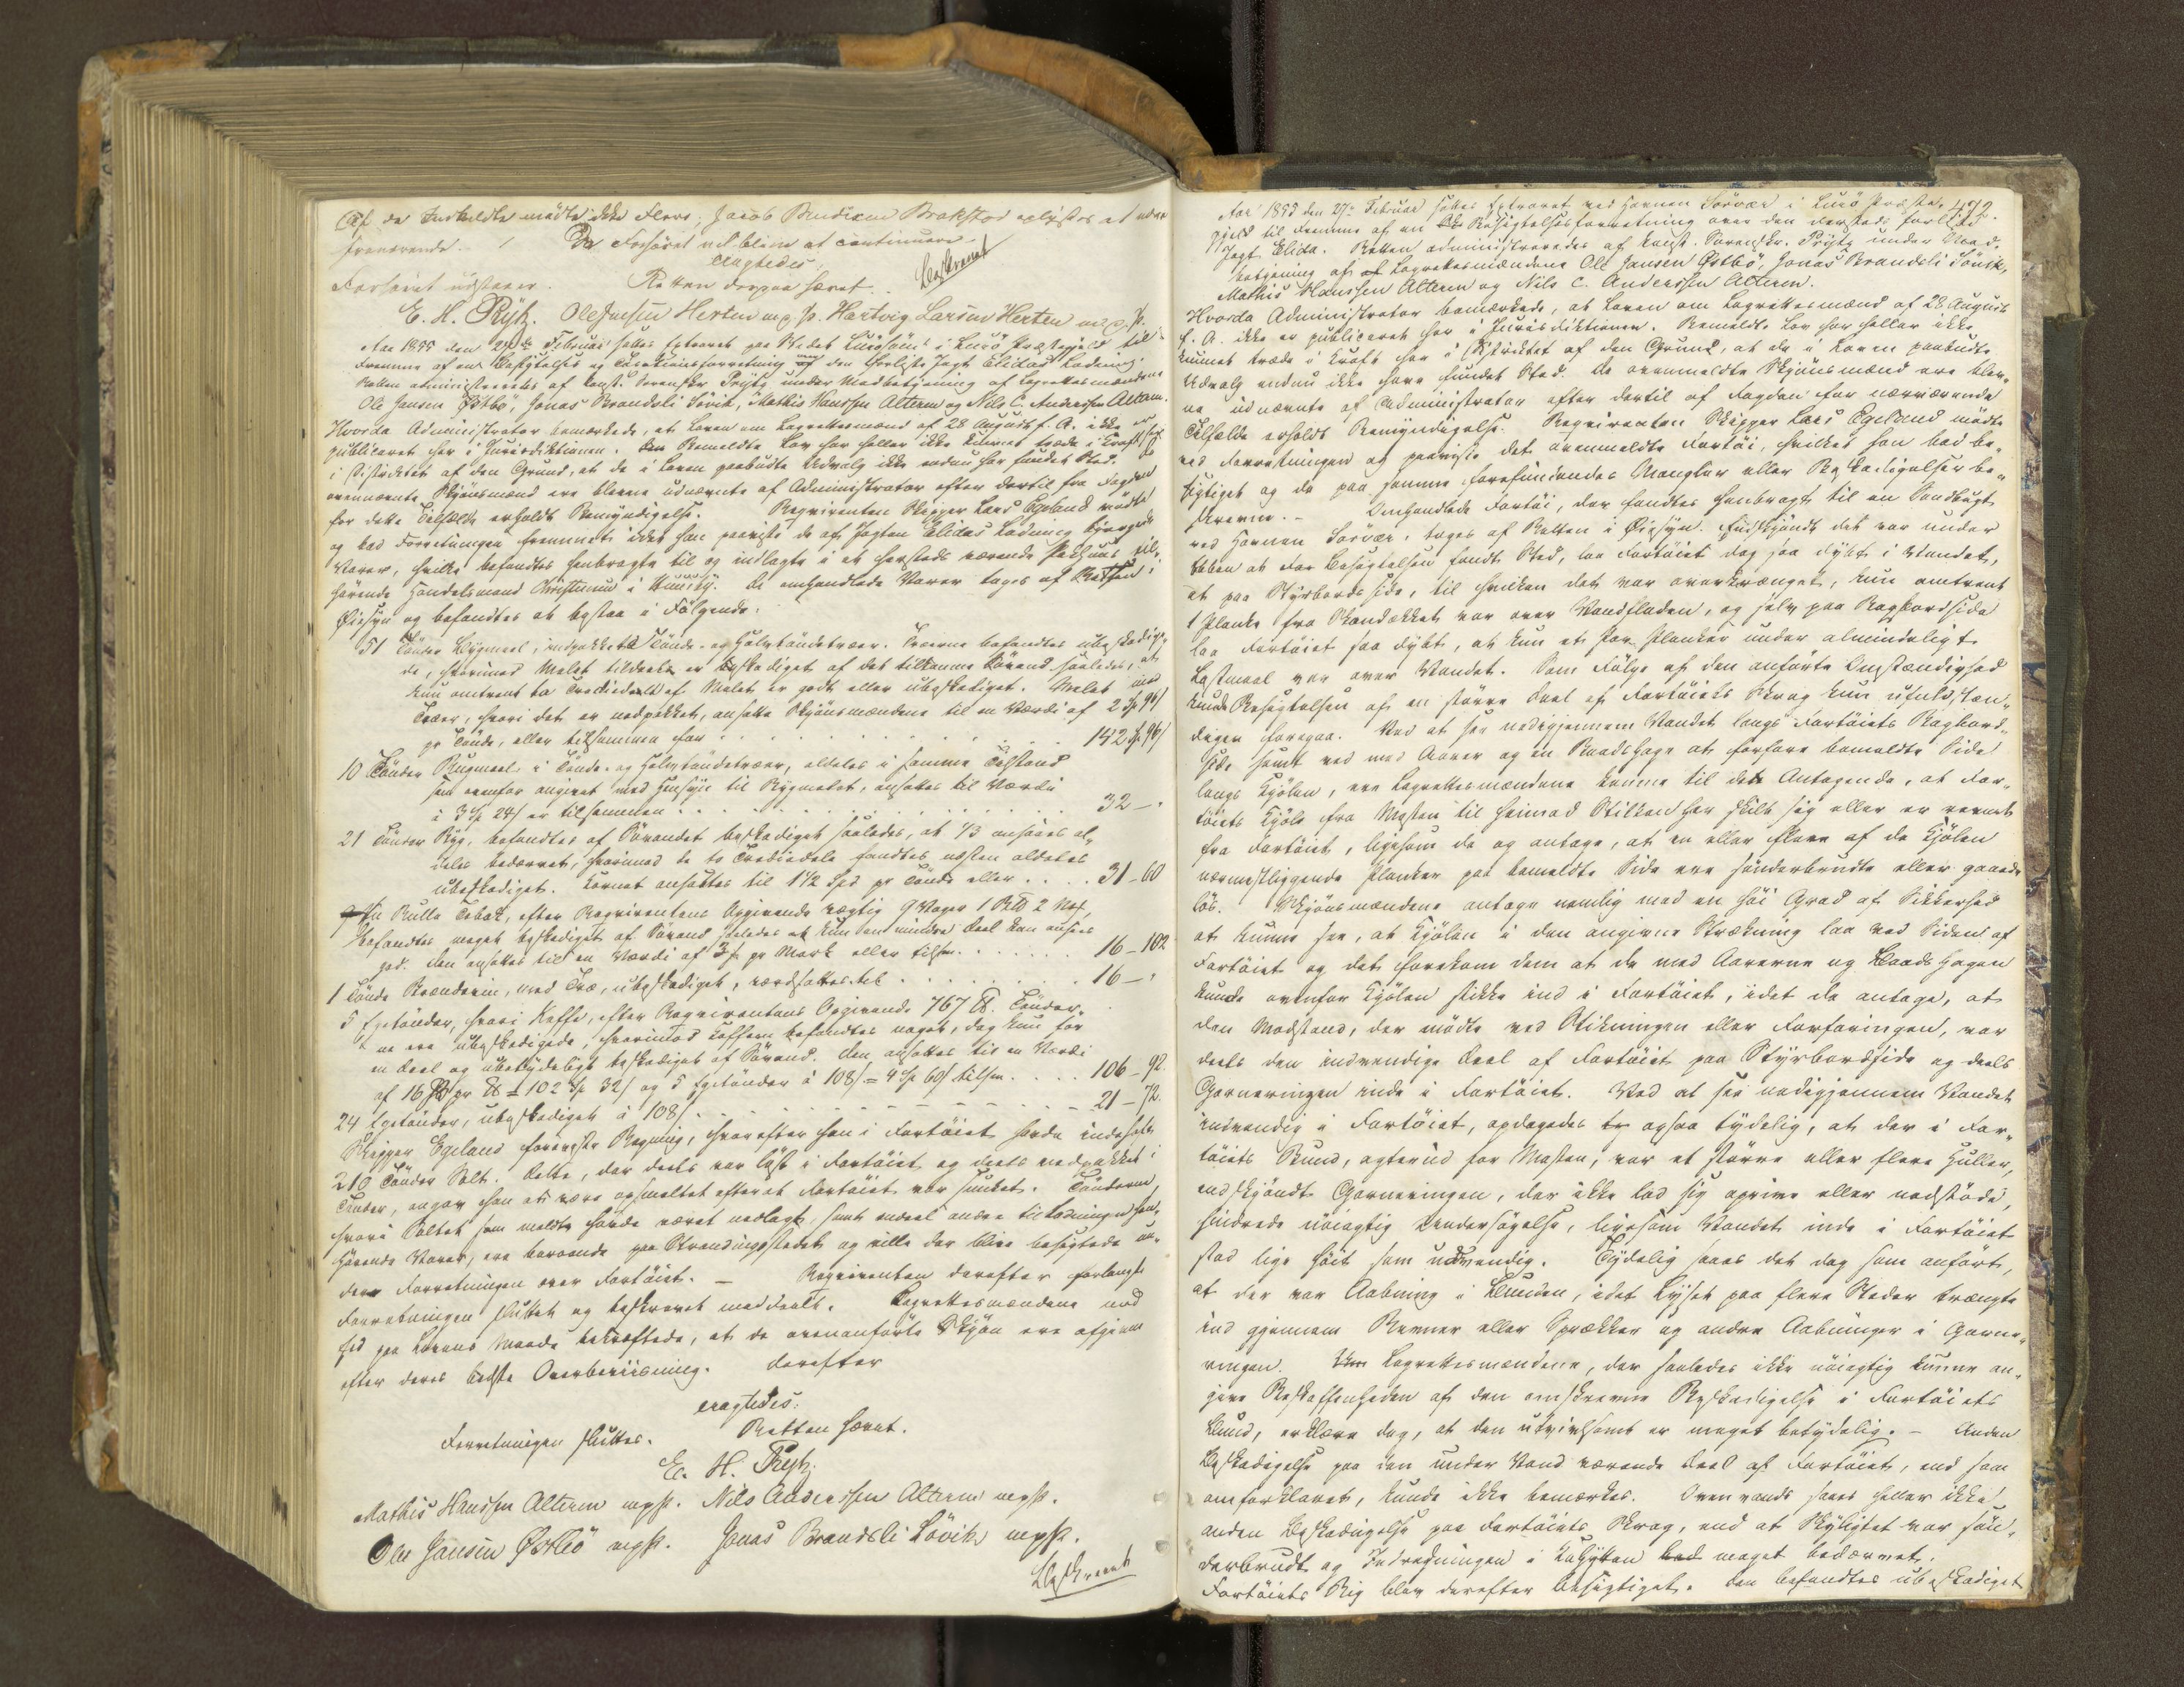 Af de Indkaldte mödte ikke Flere; Jacob Bendixen Brakstad oplystes at være
fraværende. / Da Forhöret vil blive at continuere
eragtedes:
Forhöret udstaaer. Retten derpaa hævet. Beskrevet
E. H. Prytz. Ole Jensen Herten m. p. P. Hartvig Larsen Herten m. p. P.
Aar 1855 den 27de Februar sattes Extraret paa Stedet Lurösund i Lurö Præstegjeld til
Fremme af en Besigtelses og Taxationsforretning over den forliste Jagt Elidas Ladning.
Retten administreredes af const. Sorenskr. Prytz under Medbetjening af Lagrettesmændene
Ole Jansen Östbö, Jonas Brandsli Lövik, Mathis Hanssen Alteren og Nils C. Anderssen Alteren.
Hvorda Administrator bemærkede, at Loven om Lagrettesmænd af 28 August f. A. ikke er
publiceret her i Jurisdiktionen. Bemeldte Lov har heller ikke kunnet træde i Kraft her
i Distriktet af den Grund, at de i Loven paabudte Udvalg ikke endnu har fundet Sted. De
ovennævnte Skjönsmænd ere blevne udnævnte af Administrator efter dertil fra Fogden
for dette Tilfælde erholdt Bemyndigelse. Reqvirenten Skipper Lars Egeland mödte
og bad Forretningen fremmet idet han paaviste de af Jagten Elidas Ladning bjergede
Varer, hvilke befandtes henbragte til og indlagte i et hersteds værende Pakhuus til-
hörende Handelsmand Christensen i Huusby. De omhandlede Varer toges af Retten i
Öiesyn og befandtes at bestaa i Fölgende:
51 Tönder Bygmeel, indpakket i Tönde- og Halvtöndetræer. Træerne befandtes ubeskadige-
de, hvorimod Melet tildeels er beskadiget af det tilkomne Sövand saaledes, at
kun omtrent to Trediedele af Melet er godt eller ubeskadiget. Melet med
Træer, hvori det er nedpakket, ansatte Skjönsmændene til en Værdi af 2 Sp 96 s
pr Tönde, eller tilsammen for . . . 142 Sp 96 s
10 Tönder Rugmeel i Tönde- og Halvtöndetræer, aldeles i samme Tilstand
som ovenfor angivet med Hensyn til Bygmelet, ansattes til Værdi
à 3 Sp 24 s er tilsammen . . . 32 - "
21 Tönder Byg, befandtes af Sövandet beskadiget saaledes, at 1/3 ansaaes al-
deles bedærvet, hvorimod de to Trediedele fandtes næsten aldeles
ubeskadiget. Kornet ansattes til 1 1/2 Spd pr Tönde eller . . . 31 - 60
En Rulle Tobak, efter Reqvirentens Opgivende vægtig 9 Voger 1 Bpd 2 Mrk,
befandtes meget beskadiget af Sövand saaledes at kun en mindre Deel kan ansees
god. Den ansattes til en Værdi af 3 s pr Mark eller tilsm. . . . 16 - 102
1 Tönde Brændeviin, med Træ, ubeskadiget, værdsattes til . . . 16 - "
5 Egetönder, hvori Kaffe, efter Reqvirentens Opgivende 767 ℔. Tönder-
ne ere ubeskadigede, hvorimod Kaffeen befandtes noget, dog kun for
en Deel og ubetydeligt beskadiget af Sövand. Den ansattes til en Værdi
af 16 s pr ℔ = 102 Sp 32 s og 5 Egetönder à 108 s = 4 Sp 60 s tilsm. . . . 106 - 92.
24 Egetönder, ubeskadiget à 108 s . . . 21 - 72.
Skipper Egeland foreviste Regning, hvorefter han i Fartöiet havde indehavt
210 Tönder Salt. Dette, der deels var löst i Fartöiet og deels nedpakket i
Tönder, angav han at være opsmeltet efterat Fartöiet var sunket. Tönderne,
hvori Saltet som meldt havde været nedlagt, samt endeel andre til Ladningen hen-
hörende Varer, ere beroende paa Strandingsstedet og ville der blive besigtede un-
der Forretningen over Fartöiet. — Reqvirenten derefter forlangte
Forretningen sluttet og beskrevet meddeelt. Lagrettesmændene ved
Ed paa Lovens Maade bekræftede, at de ovenanförte Skjön ere afgivne
efter deres bedste Overbeviisning. Derefter
eragtedes:
Forretningen sluttes. Retten hævet.
E. H. Prytz.
Mathis Hanssen Alteren mpP. Nils Anderssen Alteren mpP.
Ole Jansen Östbö mpP. Jonas Brandsli Lövik mpP.
Beskrevet
472.
Aar 1855 den 27de Februar sattes Extraret ved Havnen Sörvær i Lurö Præste-
gjeld til Fremme af en Besigtelsesforretning over den dersteds forliste
Jagt Elida. Retten administreredes af const. Sorenskr. Prytz under Med-
betjening af Lagrettesmændene Ole Jansen Östbö, Jonas Brandsli Lövik,
Mathis Hanssen Alteren og Nils C. Anderssen Alteren.
Hvorda Administrator bemærkede, at Loven om Lagrettesmænd af 28 August
f. A. ikke er publiceret her i Jurisdiktionen. Bemeldte Lov har heller ikke
kunnet træde i Kraft her i Distriktet af den Grund, at de i Loven paabudte
Udvalg endnu ikke have fundet Sted. De ovenmeldte Skjönsmænd ere blev-
ne udnævnte af Administrator efter dertil af Fogden for nærværende
Tilfælde erholdt Bemyndigelse. Reqvirenten Skipper Lars Egeland mödte
ved Forretningen og paaviste det ovenmeldte Fartöi, hvilket han bad be-
sigtiget og de paa samme forefindendes Mangler eller Beskadigelser be-
skreven. — Omhandlede Fartöi, der fandtes henbragt til en Sandbugt
ved Havnen Sörvær, toges af Retten i Öiesyn. Endskjöndt det var under
Ebben at Besigtelsen fandt Sted, laa Fartöiet dog saa dybt i Vandet,
at paa Styrbordsside, til hvilken det var overkrænget, kun omtrent
1 Planke fra Skandækket var over Vandfladen, og selv paa Bagbordsside
laa Fartöiet saa dybt, at kun et Par Planker under almindeligt
Lastmaal var over Vandet. Som Fölge af den anförte Omstændighed
kunde Besigtelsen af en större Deel af Fartöiets Skrog kun ufuldstæn-
digen foregaa. Ved at see nedigjennem Vandet langs Fartöiets Bagbord-
side, samt ved med Aarer og en Baadshage at forfare bemeldte Side
langs Kjölen, ere Lagrettesmændene komne til det Antagende, at Far-
töiets Kjöl fra Masten til henved Stilken har skilt sig eller er revnet
fra Fartöiet, ligesom de og antage, at en eller flere af de Kjölen
nærmestliggende Planker paa bemeldte Side ere sönderbrudte eller gaaede
lös. Skjönsmændene antage nemlig med en höi Grad af Sikkerhed
at kunne see, at Kjölen i den angivne Strækning laa ved Siden af
Fartöiet og det forekom dem at de med Aarerne og Baadshagen
kunde ovenfor Kjölen stikke ind i Fartöiet, idet de antage, at
den Modstand, der mödte ved Stikningen eller Forfaringen, var
deels den indvendige Deel af Fartöiet paa Styrbordside og deels
Garneringen inde i Fartöiet. Ved at see nedigjennem Vandet
indvendig i Fartöiet, opdagedes ogsaa tydelig, at der i Far-
töiets Bund, agterud for Masten, var et större eller flere Huller,
endskjöndt Garneringen, der ikke lod sig oprive eller nedstöde,
hindrede nöiagtig Undersögelse, ligesom Vandet inde i Fartöiet
stod lige höit som udvendig. Tydelig saaes det dog som anfört,
at der var Aabning i Bunden, idet Lyset paa flere Steder trængte
ind gjennem Revner eller Sprækker og andre Aabninger i Garne-
ringen. Lagrettesmændene, der saaledes ikke nöiagtig kunne an-
give Beskaffenheden af den omskrevne Beskadigelse i Fartöiets
Bund, erklære dog, at den utvivlsomt er meget betydelig. — Anden
Beskadigelse paa den under Vand værende Deel af Fartöiet, end som
omforklaret, kunde ikke bemærkes. Ovenvands saaes heller ikke
anden Beskadigelse paa Fartöiets Skrog, end at Skylightet var sön-
derbrudt og Indredningen i Kahytten meget bedærvet.
Fartöiets Rig blev derefter besigtiget. Den befandtes ubeskadiget